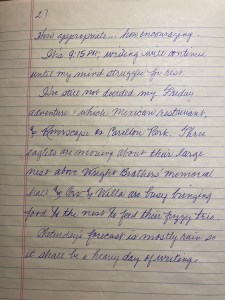 27
How appropriate... how encouraging.
It's 9:15 PM, writing will continue
until my mind struggles for rest.
I've still not decided my Friday
adventure: which Mexican restaurant,
& Riverscape or Carillon Park. Three
eaglets are moving about their large
nest above Wright Brothers' Memorial
& Orv & Willa are busy bringing
food to the nest to feed their fuzzy trio.
Saturday's forecast is mostly rain so
it shall be a heavy day of writing.